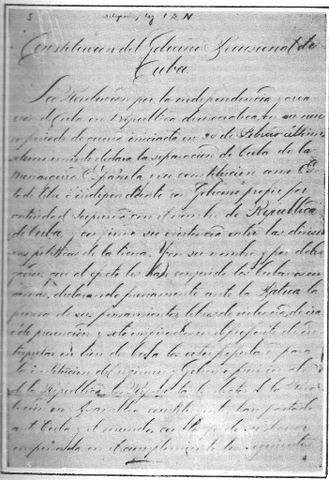 Constitucion del Gobierno Provisional de
Cuba.
La Revolucion por la independencia y crea
cion de Cuba en república democratica, en su nuevo
periodo de guerra iniciada en 24 de Febrero último,
declara la separacion de Cuba de la
Monarquia Española y su constitucion como Es
tado libre é independiente con Gobierno propio por
autoridad Suprema con el nombre de República
de Cuba, y confirma su existencia entre las divisio
nes politicas de la tierra. Y en su nombre y por
que al efecto les han conferido los Cubanos en
armas, declarando previamente ante la Patria la
pureza de sus pensamientos libres de violencia, de ira
ó de prevencion y solo inspirados en el proposito de in
terpretar en bien de Cuba los votos populares para
la institucion del regimen y Gobierno
de la República los Representantes electos de la Revolu
cion en Asamblea constituyente han pactado
ante Cuba y el mundo con la fé de su honor
empeñado en el cumplimiento los siguientes